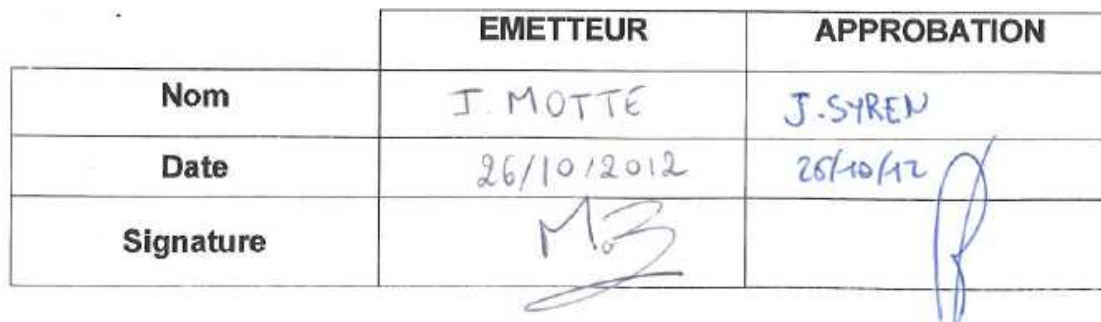 EMETTEUR APPROBATION
Nom J. MOTTE J.SYREN
Date 26/10/2012 26/10/12
Signature